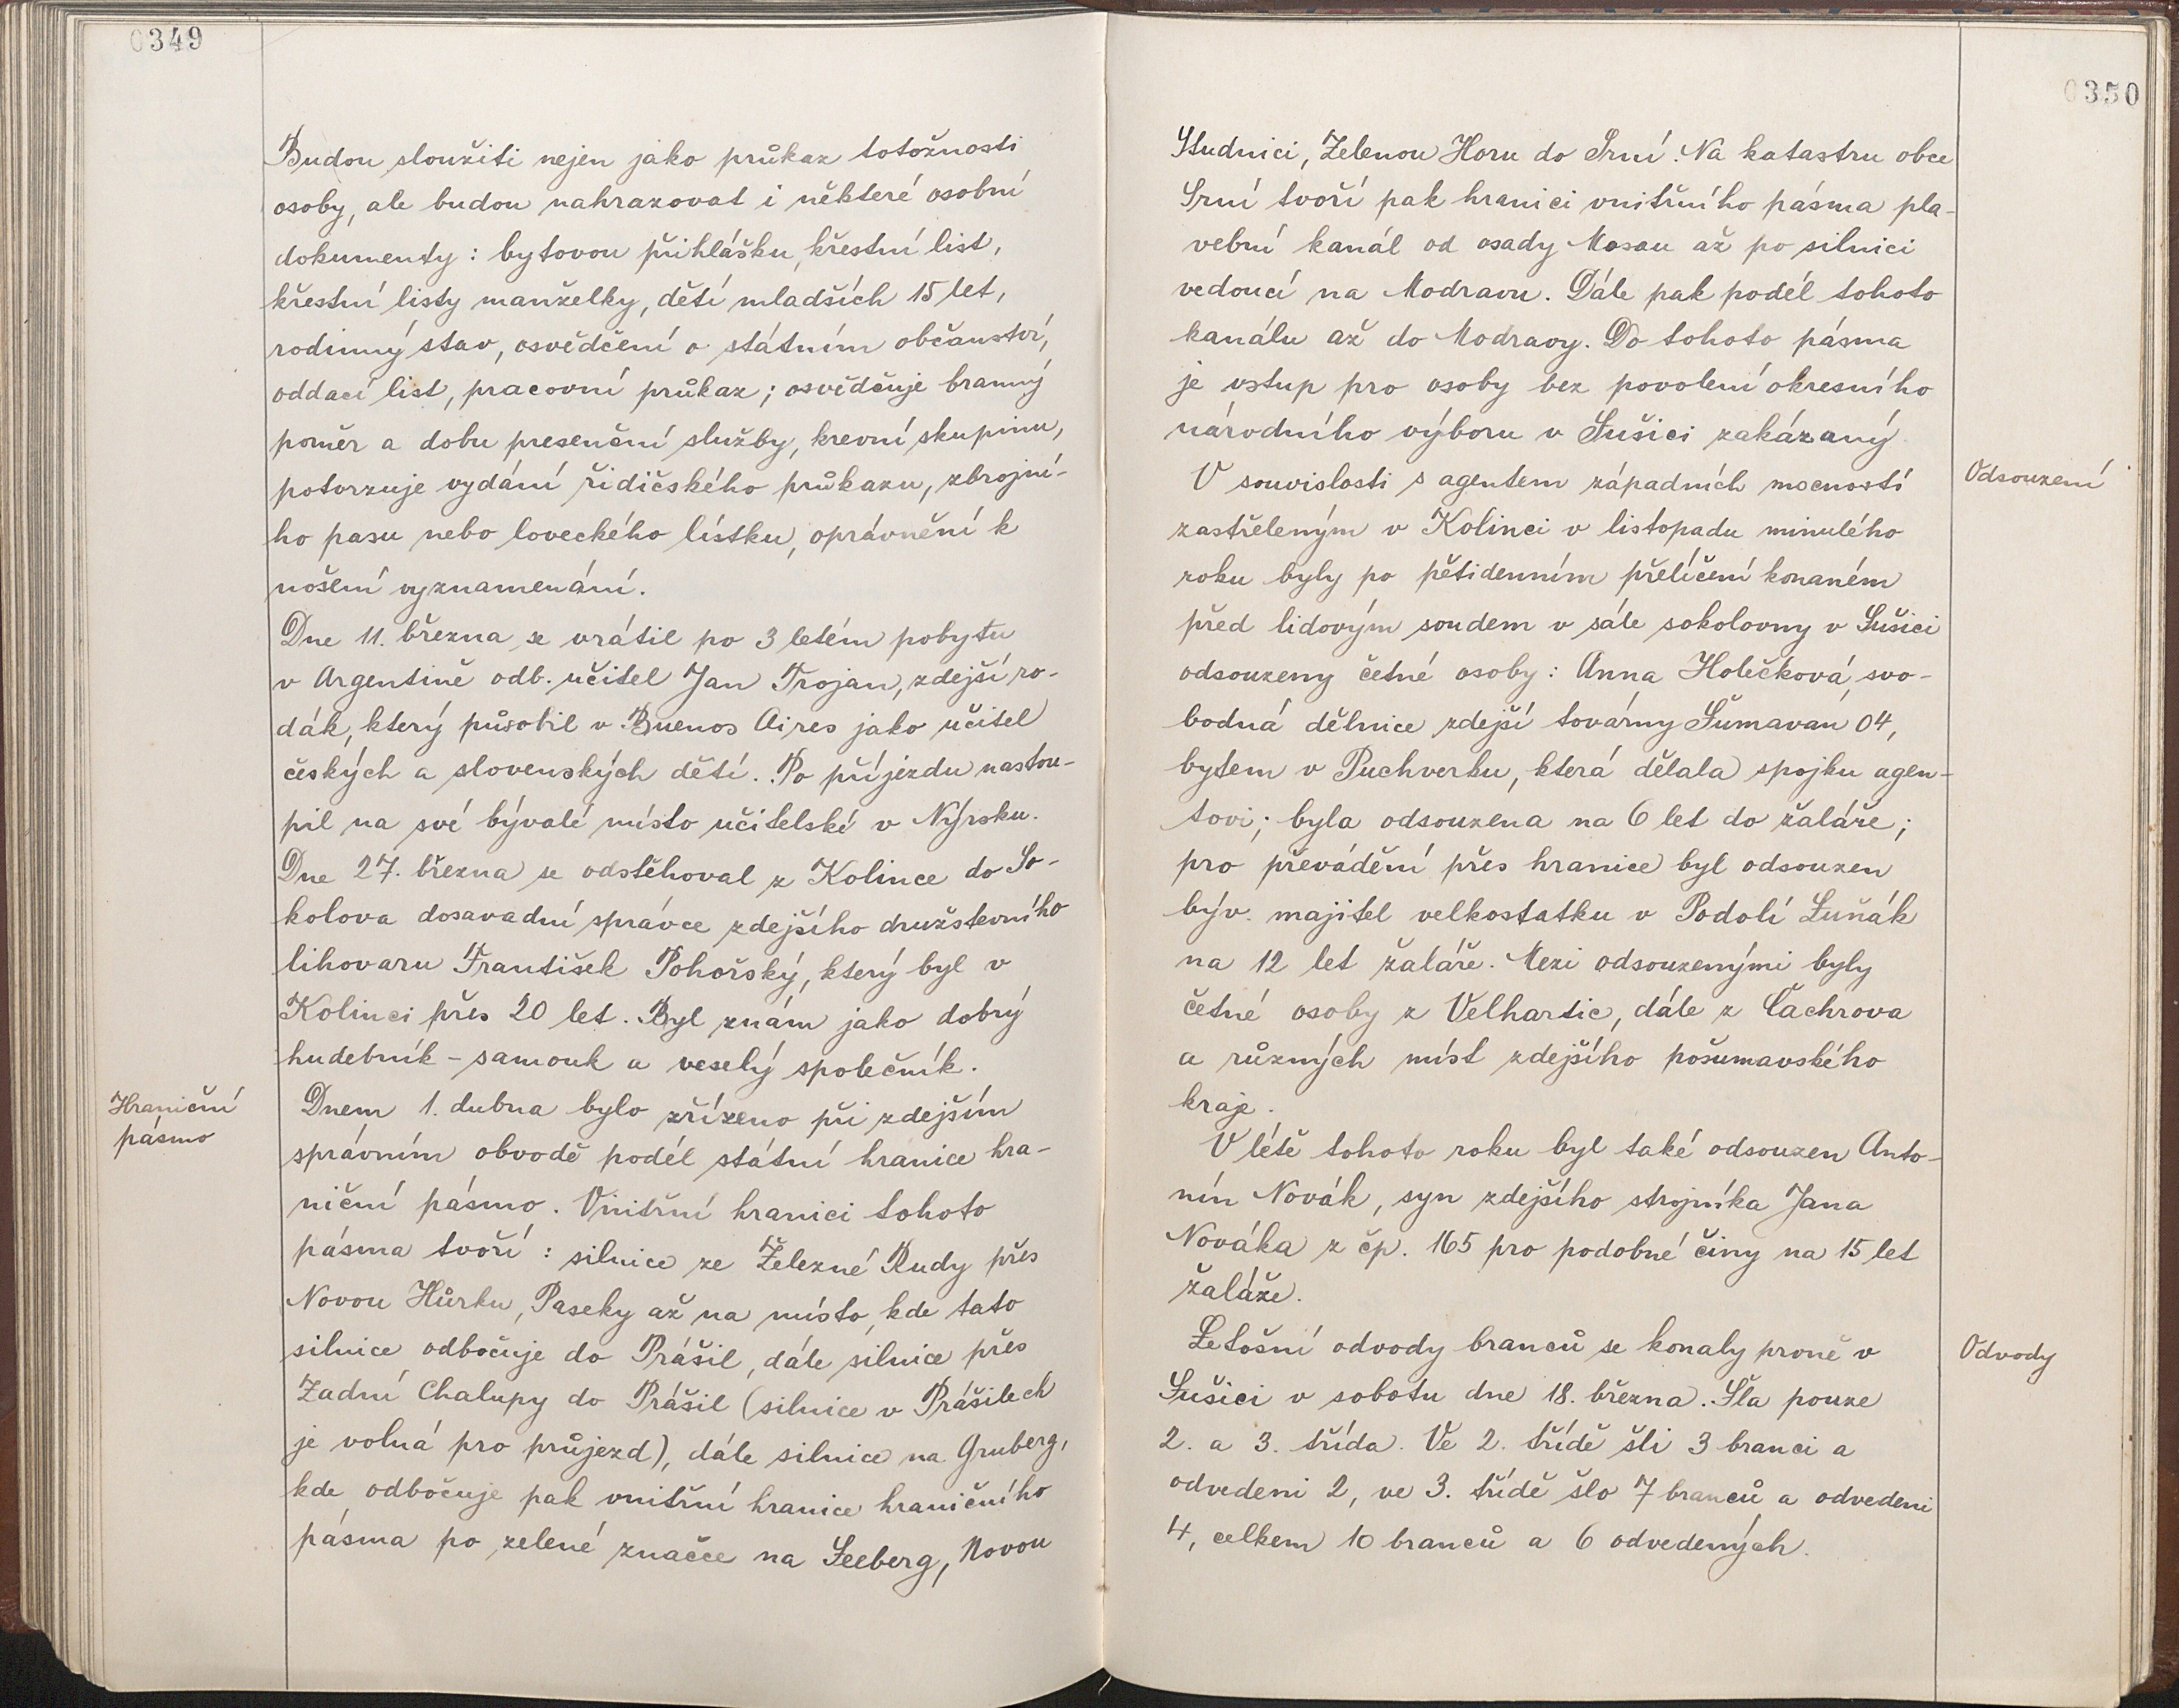 0349
Budou sloužiti nejen jako průkaz totožnosti
osoby, ale budou nahrazovat i některé osobní
dokumenty: bytovou přihlášku, křestní list,
křestní listy manželky, dětí mladších 15 let,
rodinný stav, osvědčení o státním občanství,
oddací list, pracovní průkaz; osvědčuje branný
poměr a dobu presenční služby, krevní skupinu,
potvrzuje vydání řidičského průkazu, zbrojní-
ho pasu nebo loveckého lístku, oprávnění k
nošení vyznamenání.
Dne 11. března se vrátil po 3 letém pobytu
v Argentině odb. učitel Jan Trojan, zdejší ro-
dák, který působil v Buenos Aires jako učitel
českých a slovenských dětí. Po příjezdu nastou-
pil na své bývalé místo učitelské v Nýrsku.
Dne 27. března se odstěhoval z Kolince do So-
kolova dosavadní správce zdejšího družstevního
lihovaru František Pohořský, který byl v
Kolinci přes 20 let. Byl znám jako dobrý
hudebník - samouk a veselý společník.
Hraniční
pásmo
Dnem 1. dubna bylo zřízeno při zdejším
správním obvodě podél státní hranice hra-
niční pásmo. Vnitřní hranici tohoto
pásma tvoří: silnice ze Železné Rudy přes
Novou Hůrku, Paseky až na místo, kde tato
silnice odbočuje do Prášil, dále silnice přes
Zadní Chalupy do Prášil (silnice v Prášilech
je volná pro průjezd), dále silnice na Gruberg,
kde odbočuje pak vnitřní hranice hraničního
pásma po zelené značce na Seeberg, Novou
0350
Studnici, Zelenou Horu do Srní. Na katastru obce
Srní tvoří pak hranici vnitřního pásma pla-
vební kanál od osady Mosau až po silnici
vedoucí na Modravu. Dále pak podél tohoto
kanálu až do Modravy. Do tohoto pásma
je vstup pro osoby bez povolení okresního
národního výboru v Sušici zakázaný.
Odsouzení
V souvislosti s agentem západních mocností
zastřeleným v Kolinci v listopadu minulého
roku byly po pětidenním přelíčení konaném
před lidovým soudem v sále sokolovny v Sušici
odsouzeny četné osoby: Anna Holečková, svo-
bodná dělnice zdejší továrny Šumavan 04,
bytem v Puchverku, která dělala spojku agen-
tovi; byla odsouzena na 6 let do žaláře;
pro převádění přes hranice byl odsouzen
býv. majitel velkostatku v Podolí Luňák
na 12 let žaláře. Mezi odsouzenými byly
četné osoby z Velhartic, dále z Čachrova
a různých míst zdejšího pošumavského
kraje.
V létě tohoto roku byl také odsouzen Anto-
nín Novák, syn zdejšího strojníka Jana
Nováka z čp. 165 pro podobné činy na 15 let
žaláře.
Odvody
Letošní odvody branců se konaly prvně v
Sušici v sobotu dne 18. března. Šla pouze
2. a 3. třída. Ve 2. třídě šli 3 branci a
odvedeni 2, ve 3. třídě šlo 7 branců a odvedeni
4, celkem 10 branců a 6 odvedených.